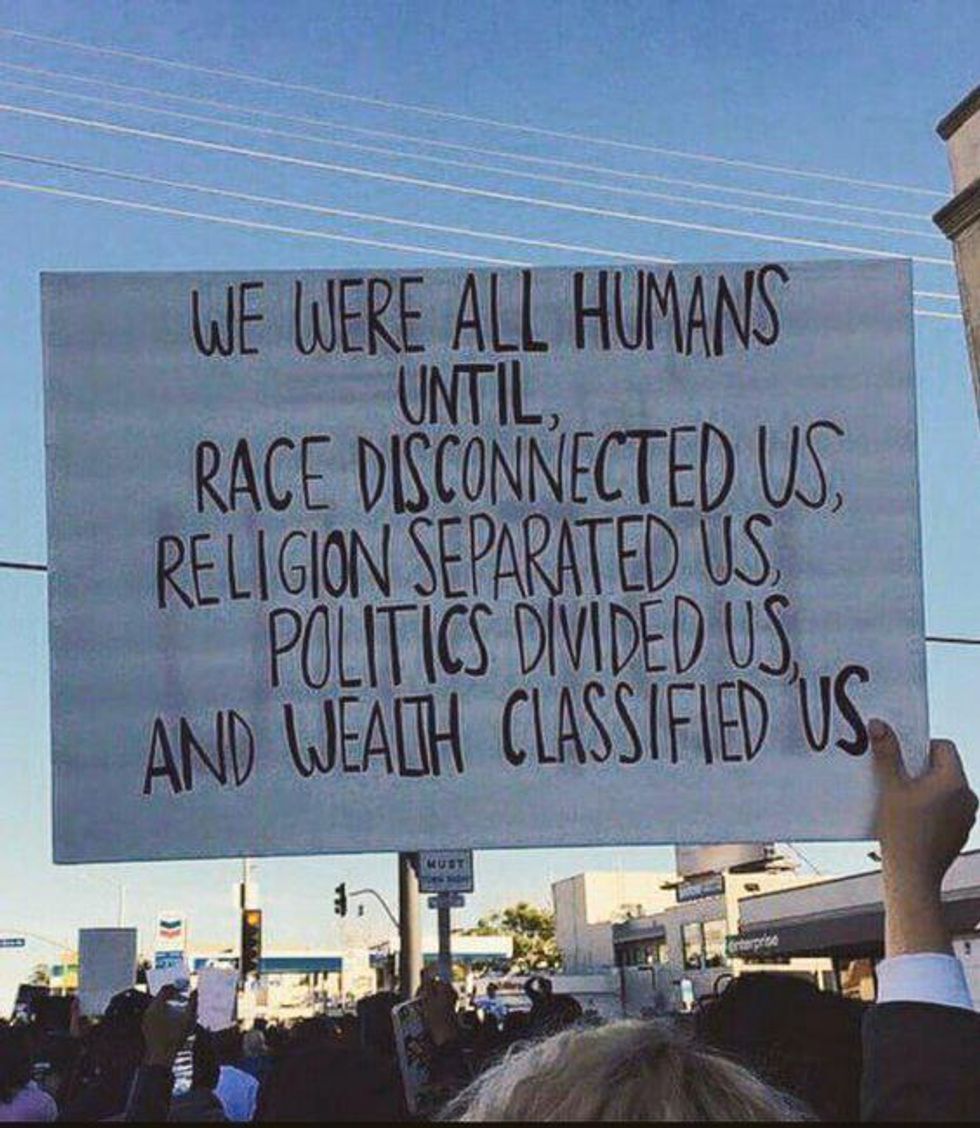 WE WERE ALL HUMANS
UNTIL,
RACE DISCONNECTED US,
RELIGION SEPARATED US,
POLITICS DIVIDED US,
AND WEALTH CLASSIFIED US
MUST
enterprise